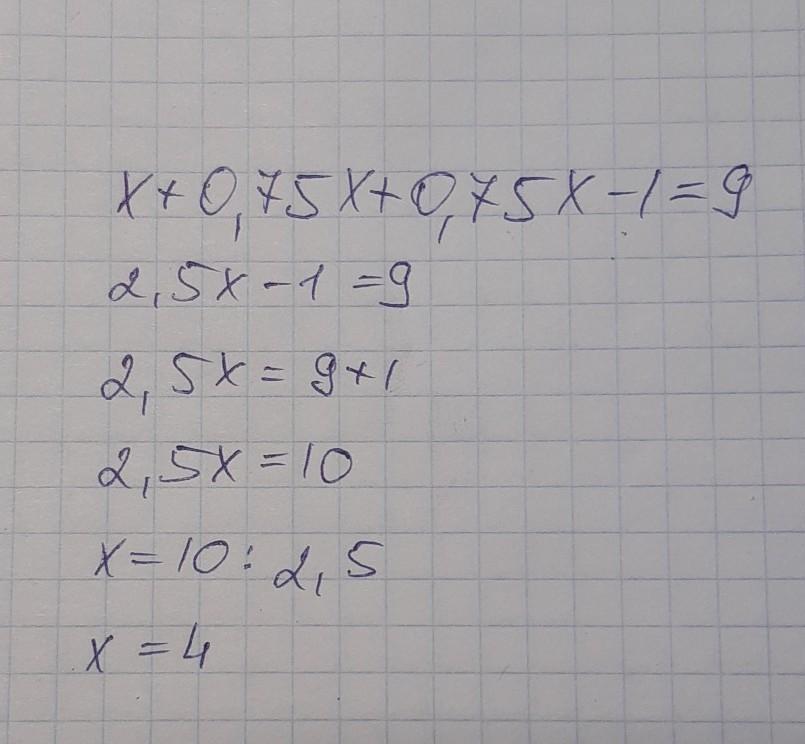 x+0,75x+0,75x-1=9
2,5x-1=9
2,5x=9+1
2,5x=10
x=10:2,5
x=4